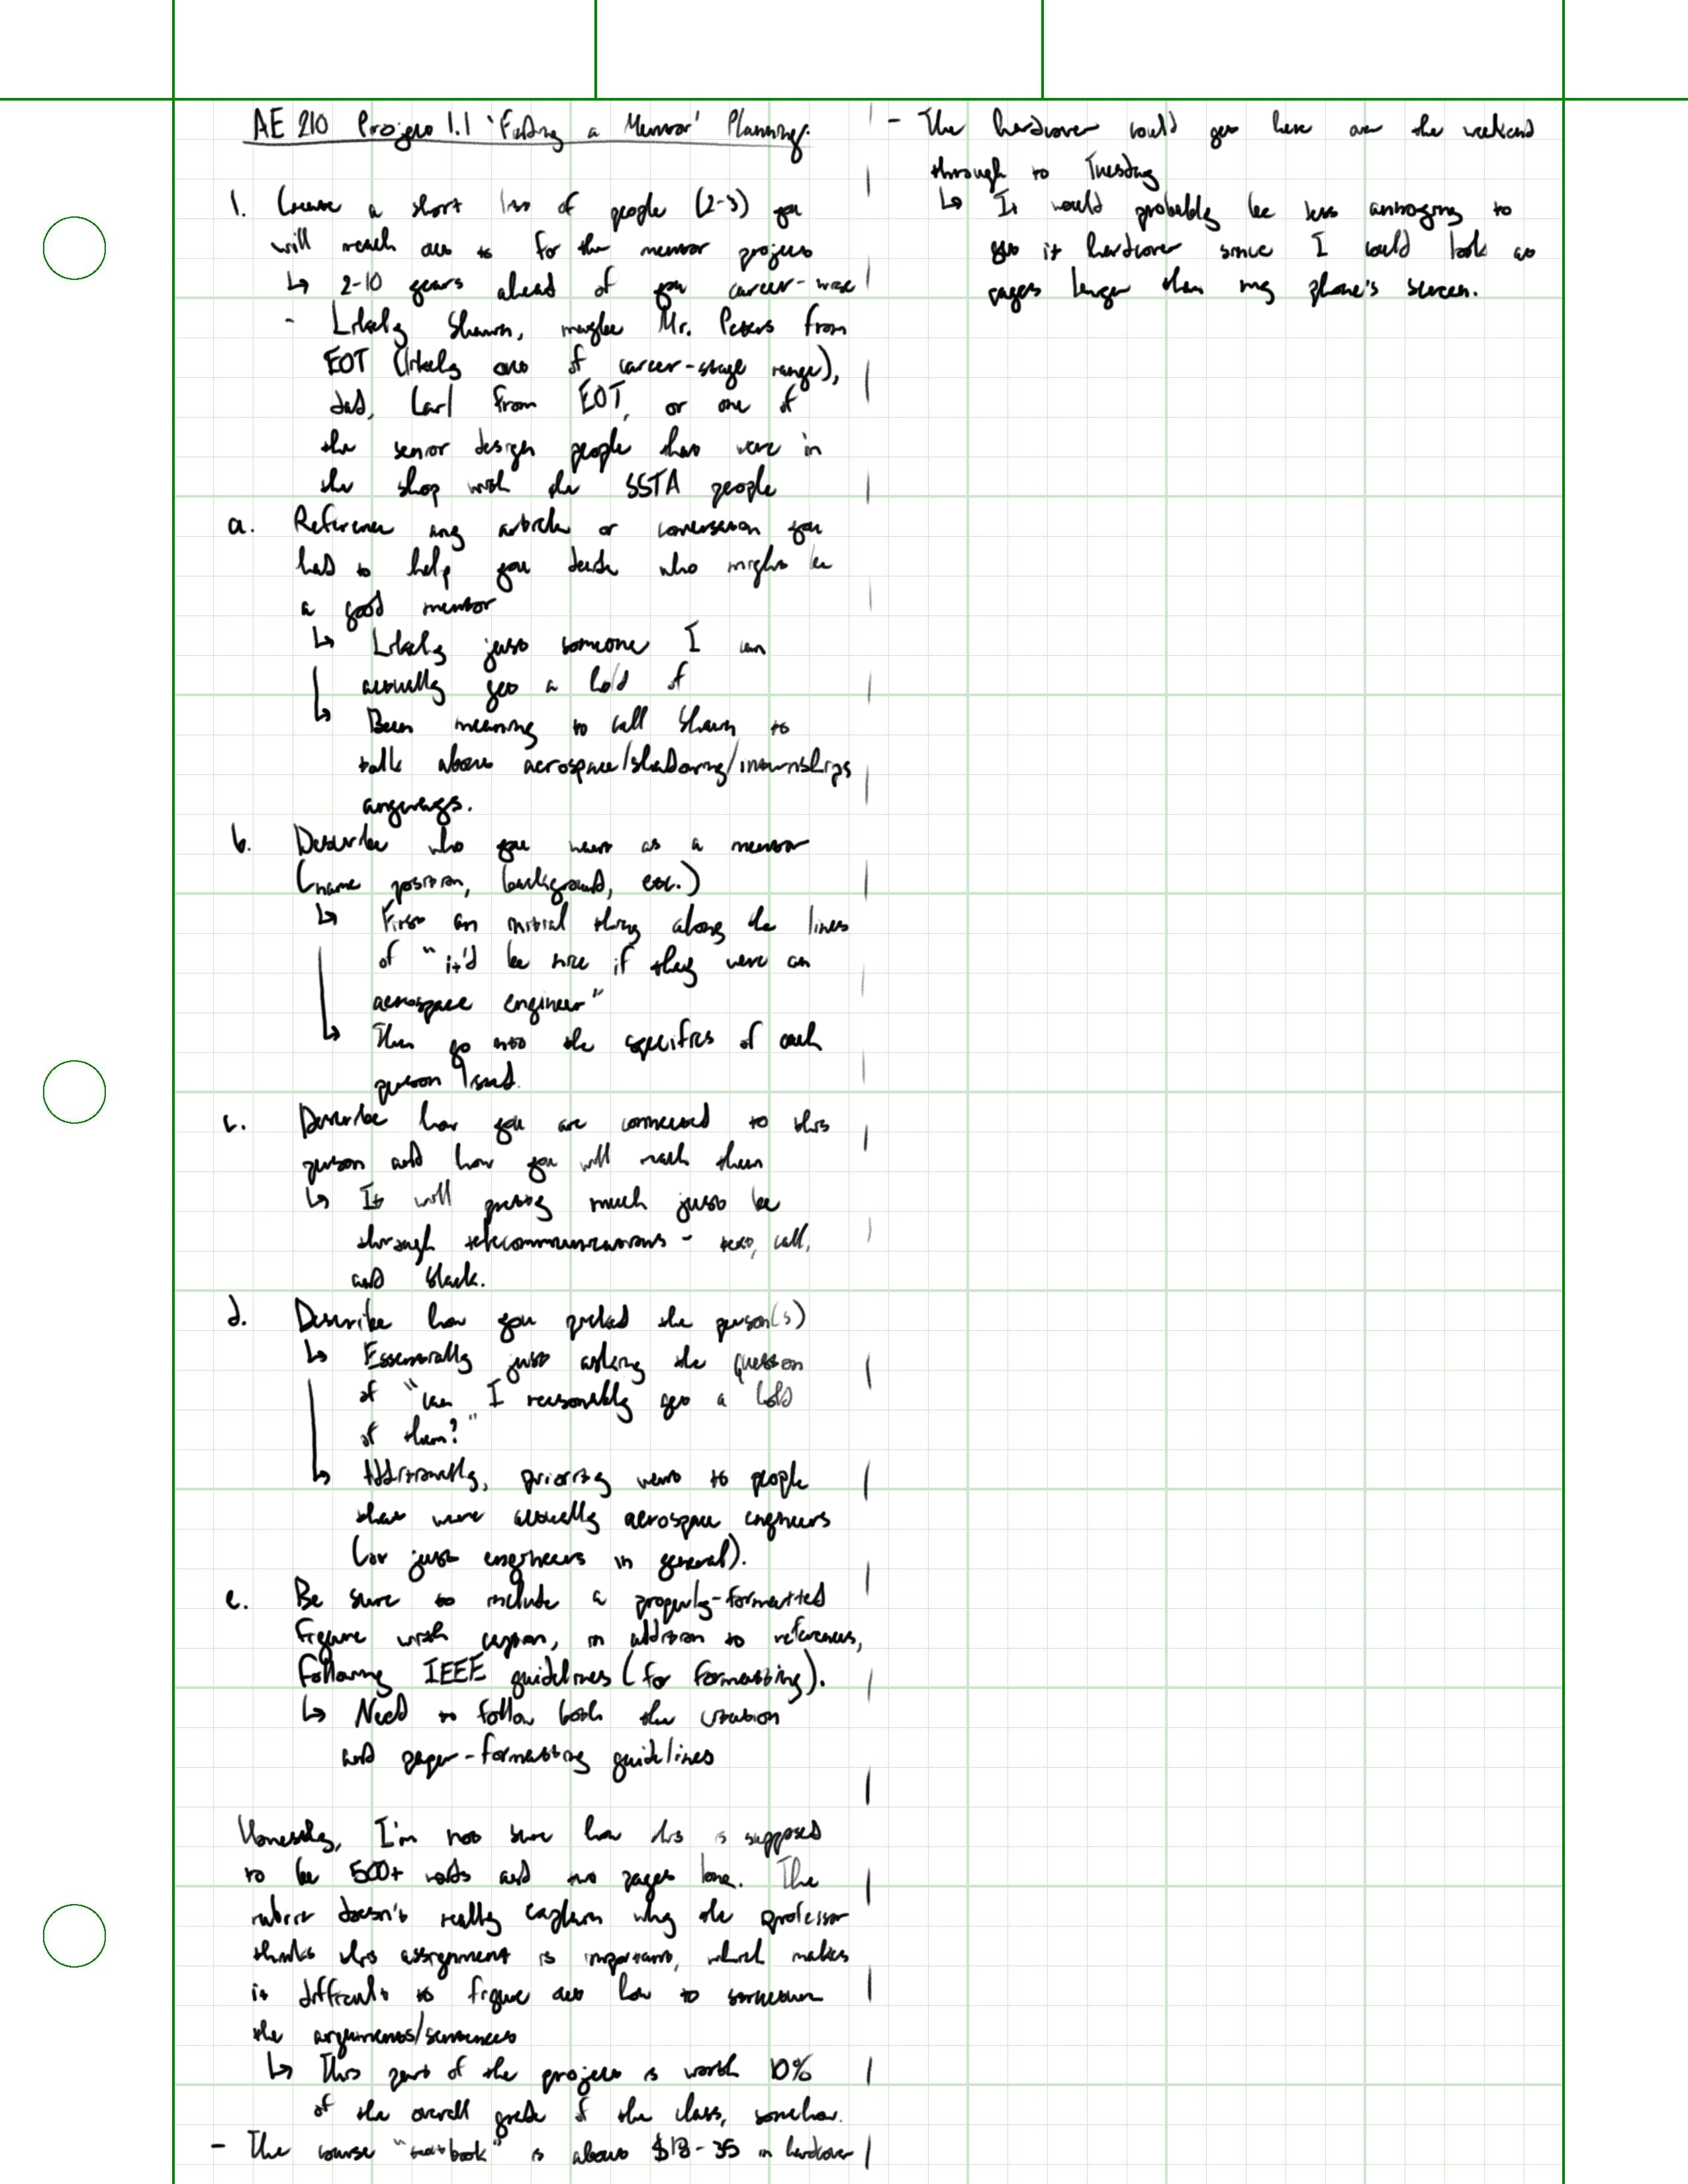 AE 210 Project 1.1 'Finding a Mentor' Planning:
1. Create a short list of people (2-3) you
will reach out to for the mentor project
↳ 2-10 years ahead of you career-wise
- Likely Shawn, maybe Mr. Peters from
EOT (likely out of career-stage range),
dad, Carl from EOT, or one of
the senior design people that were in
the shop with the SSTA people
a. Reference any article or conversation you
had to help you decide who might be
a good mentor
↳ Likely just someone I can
actually get a hold of
↳ Been meaning to call Shawn to
talk about aerospace/shadowing/internships
anyways.
b. Describe who you want as a mentor
(name position, background, etc.)
↳ First an initial thing along the lines
of "it'd be nice if they were an
aerospace engineer"
↳ Then go into the specifics of each
person listed.
c. Describe how you are connected to this
person and how you will reach them
↳ It will pretty much just be
through telecommunications - text, call,
and Slack.
d. Describe how you picked the person(s)
↳ Essentially just asking the question
of "can I reasonably get a hold
of them?"
↳ Additionally, priority went to people
that were actually aerospace engineers
(or just engineers in general).
e. Be sure to include a properly-formatted
figure with caption, in addition to references,
following IEEE guidelines (for formatting).
↳ Need to follow both the citation
and paper-formatting guidelines
Honestly, I'm not sure how this is supposed
to be 500+ words and two pages long. The
rubric doesn't really explain why the professor
thinks this assignment is important, which makes
it difficult to figure out how to
the arguments/sentences
↳ This part of the project is worth 10%
of the overall grade of the class, somehow.
- The course "textbook" is about $18-35 in hardcover
- The hardcover could get here over the weekend
through to Tuesday
↳ It would probably be less annoying to
get it hardcover since I could look at
pages larger than my phone's screen.